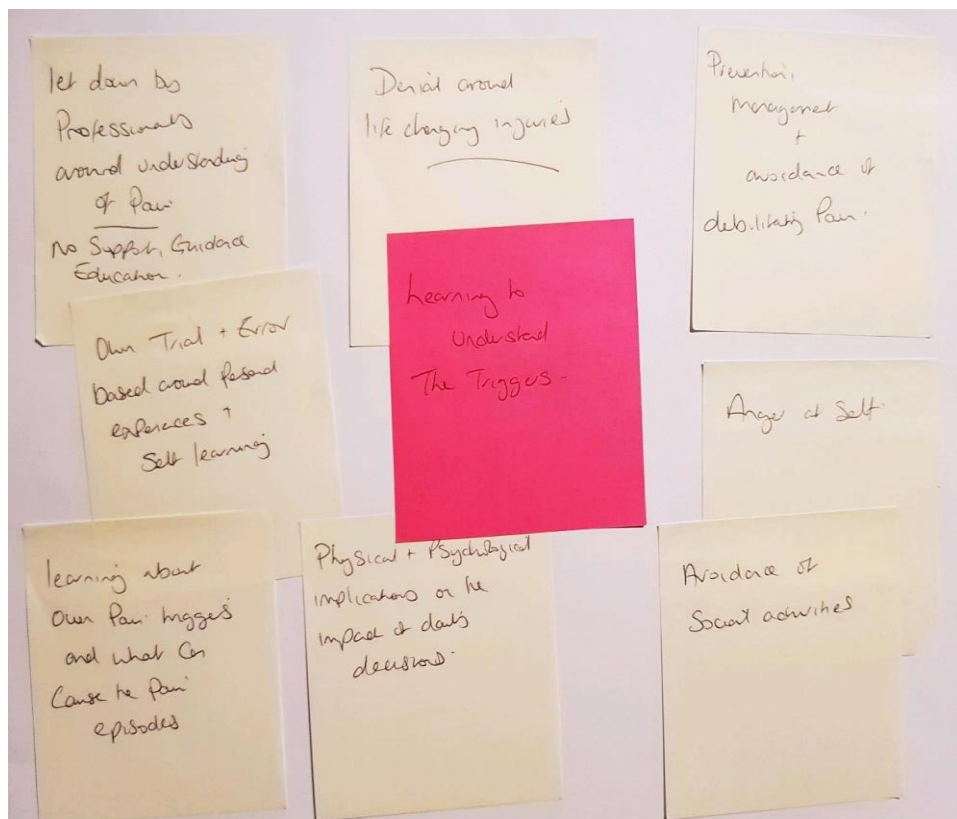 let down by
Professionals
around understanding
of Pain
No Support, Guidance
Education.
Denial around
life changing injuries
Prevention,
Management
+
avoidance of
debilitating Pain.
Own Trial + Error
based around personal
experiences +
Self learning
Learning to
Understand
The Triggers.
Anger at Self.
learning about
Own Pain triggers
and what can
Cause the Pain
episodes
Physical + Psychological
implications on the
impact of daily
decisions.
Avoidance of
Social activities